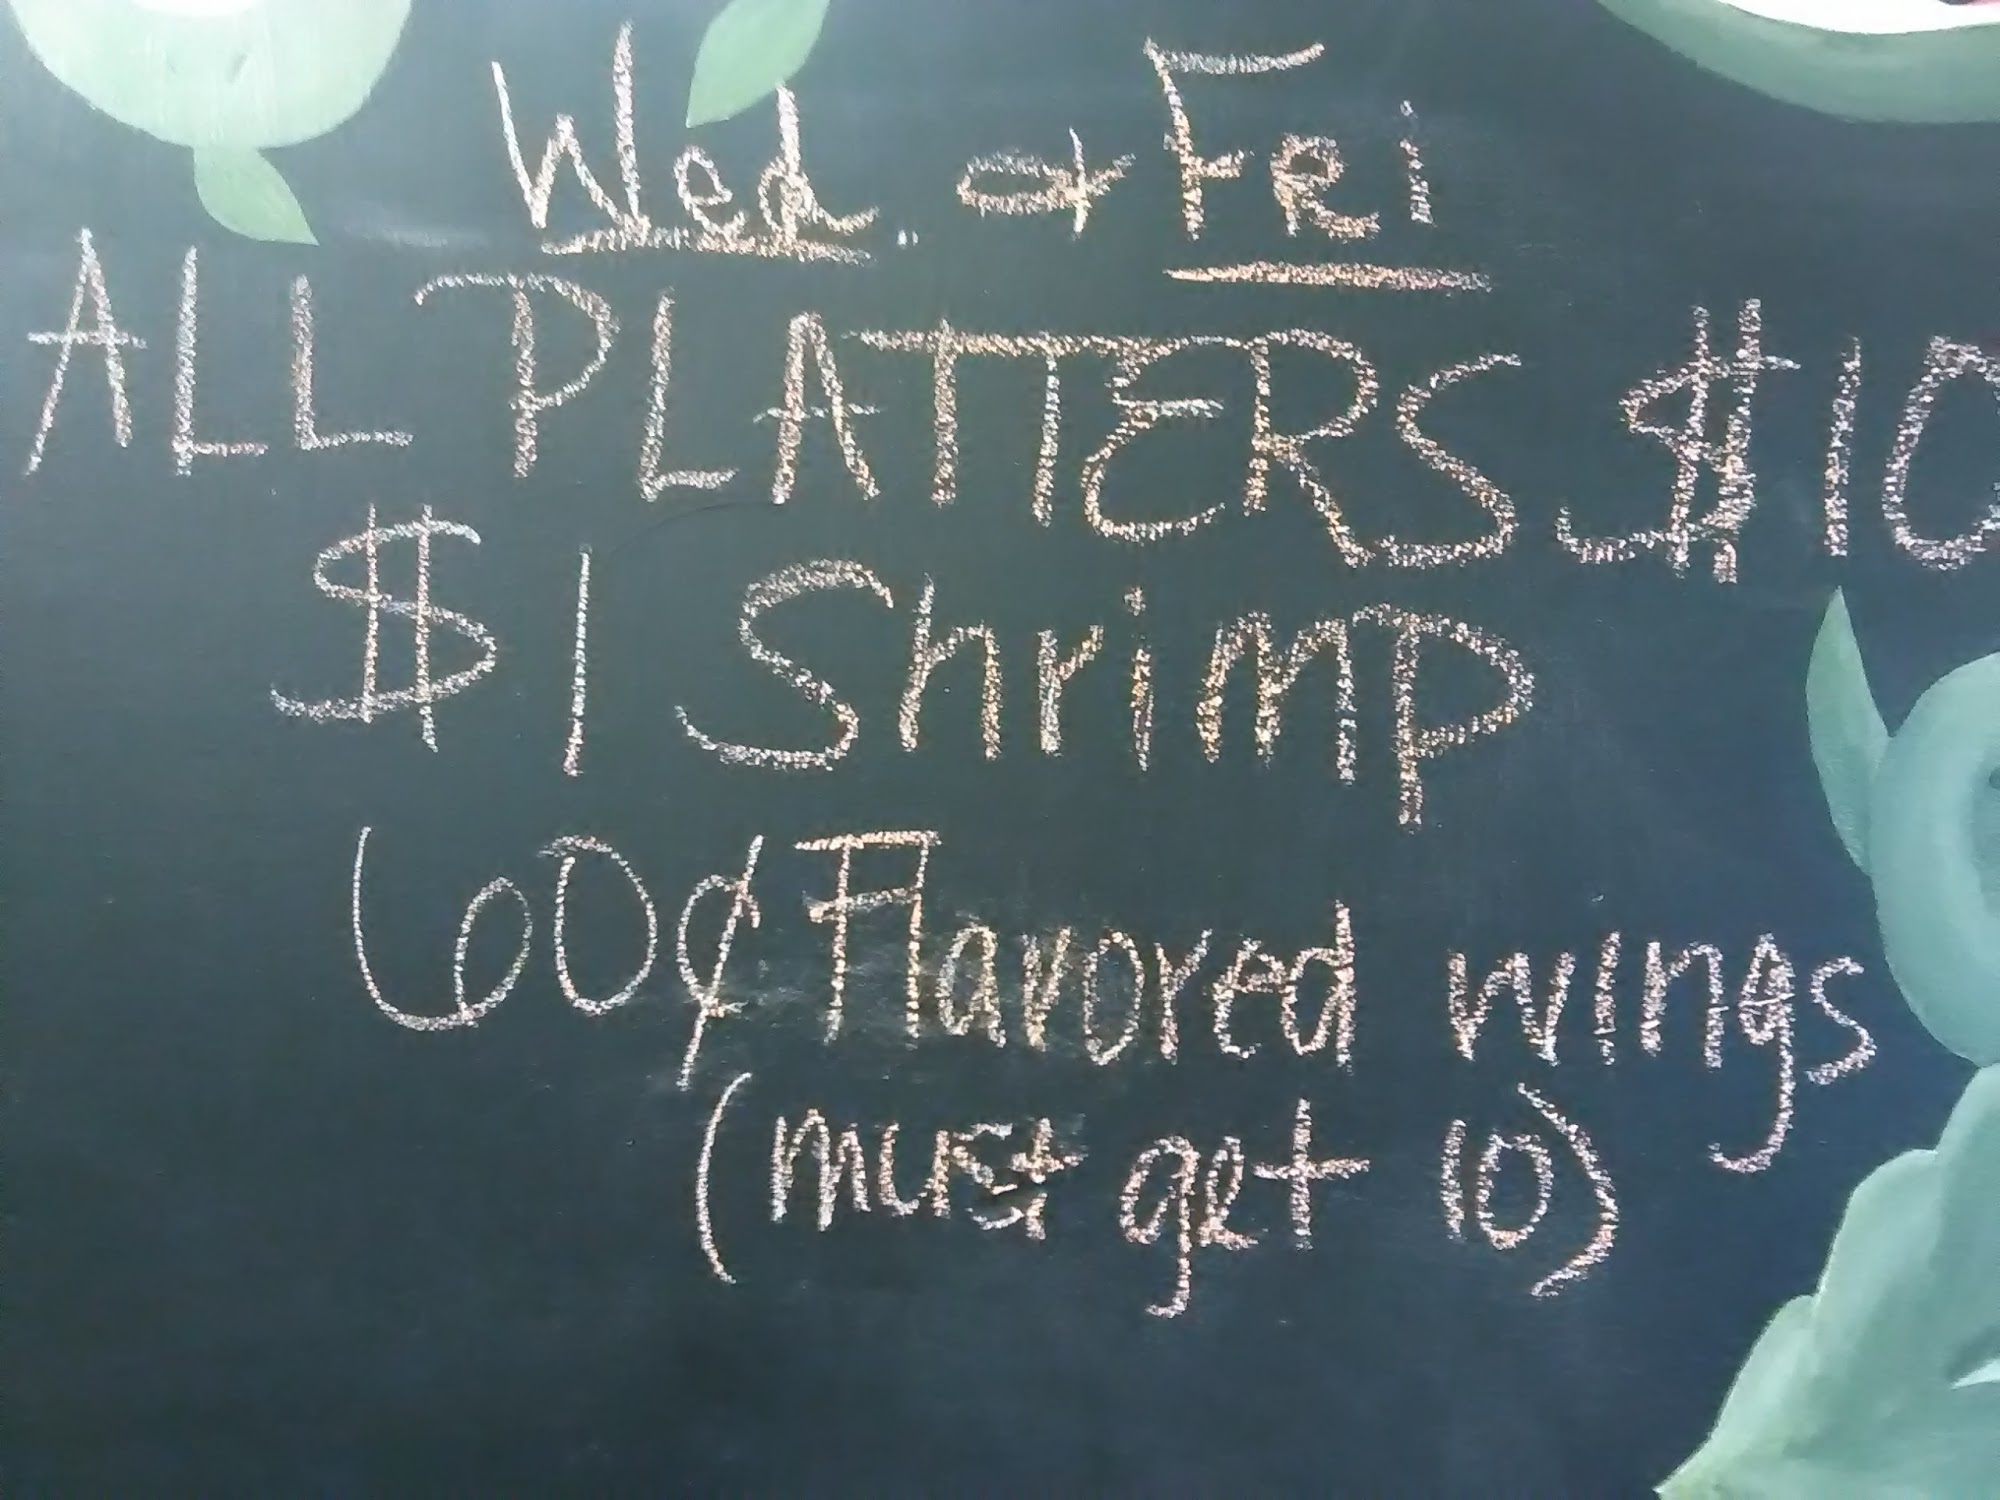 Wed. & Fri
ALL PLATTERS $10
$1 Shrimp
60¢ Flavored wings
(must get 10)